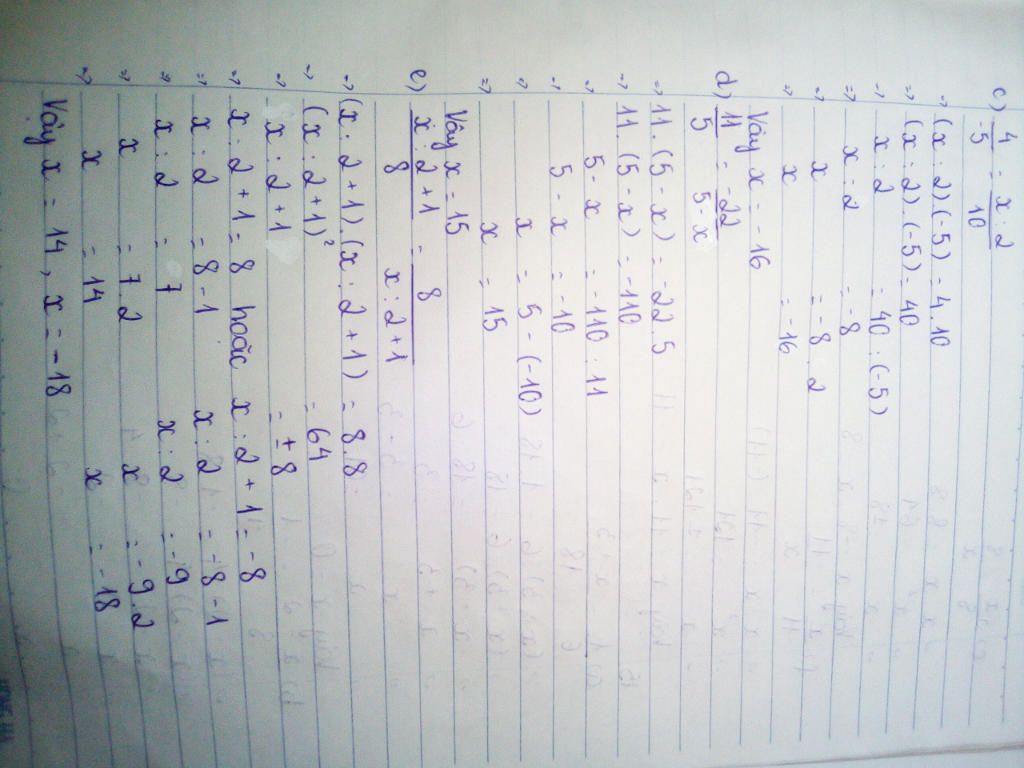 c) 4/-5 = x:2/10
=> (x:2).(-5) = 4.10
=> (x:2).(-5) = 40
=> x:2 = 40:(-5)
=> x:2 = -8
=> x = -8.2
=> x = -16
Vậy x = -16
d) 11/5 = -22/5-x
=> 11.(5-x) = -22.5
=> 11.(5-x) = -110
=> 5-x = -110:11
=> 5-x = -10
=> x = 5-(-10)
=> x = 15
Vậy x = 15
e) x:2+1/8 = 8/x:2+1
=> (x:2+1).(x:2+1) = 8.8
=> (x:2+1)² = 64
=> x:2+1 = ±8
=> x:2+1 = 8 hoặc x:2+1 = -8
=> x:2 = 8-1 x:2 = -8-1
=> x:2 = 7 x:2 = -9
=> x = 7.2 x = -9.2
=> x = 14 x = -18
Vậy x = 14, x = -18